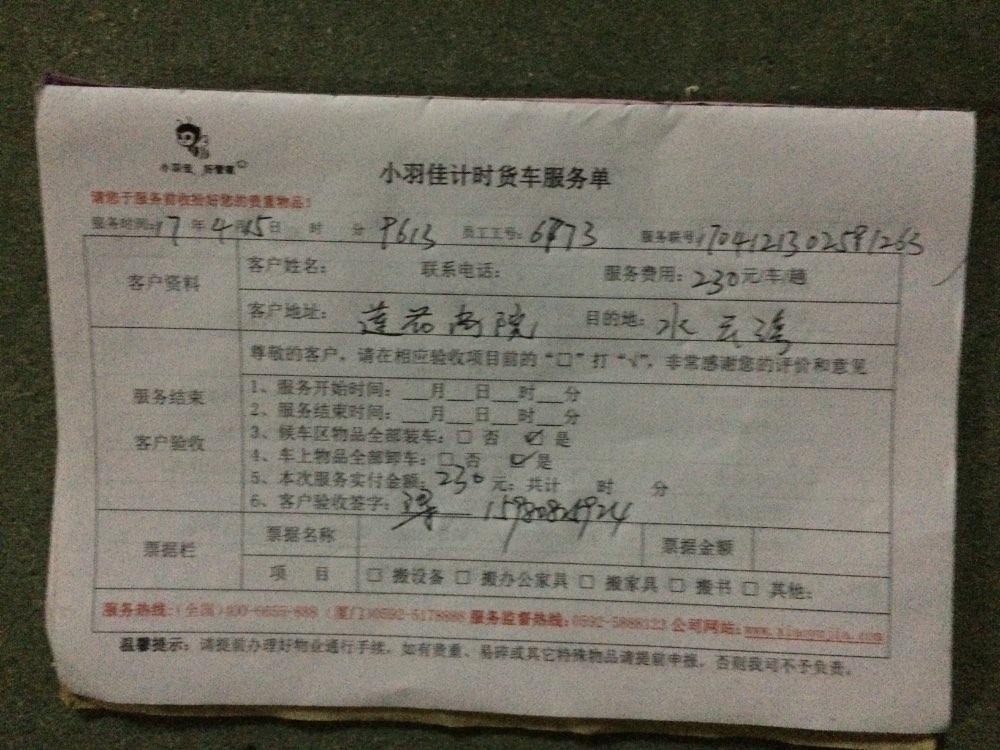 小羽佳 好管家
小羽佳计时货车服务单
请您于服务前收捡好您的贵重物品!
服务时间:17年4月15日 时 分 9613 员工工号:6973 服务联号:17041213025891263
客户资料
客户姓名: 联系电话: 服务费用:230元/车/趟
客户地址: 莲花尚院 目的地: 水云湾
服务结束
客户验收
尊敬的客户,请在相应验收项目前的“□”打“√”,非常感谢您的评价和意见
1、服务开始时间:___月___日___时___分
2、服务结束时间:___月___日___时___分
3、候车区物品全部装车:□ 否 ☑ 是
4、车上物品全部卸车:□ 否 ☑ 是
5、本次服务实付金额:230元;共计 时 分
6、客户验收签字: 15980824924
票据栏
票据名称 票据金额
项 目 □ 搬设备 □ 搬办公家具 □ 搬家具 □ 搬书 □ 其他:
服务热线:(全国)400-6655-888 (厦门)0592-5178888 服务监督热线:0592-5888122 公司网站:www.xiaoyujia.com
温馨提示:请提前办理好物业通行手续,如有贵重、易碎或其它特殊物品请提前申报,否则我司不予负责。